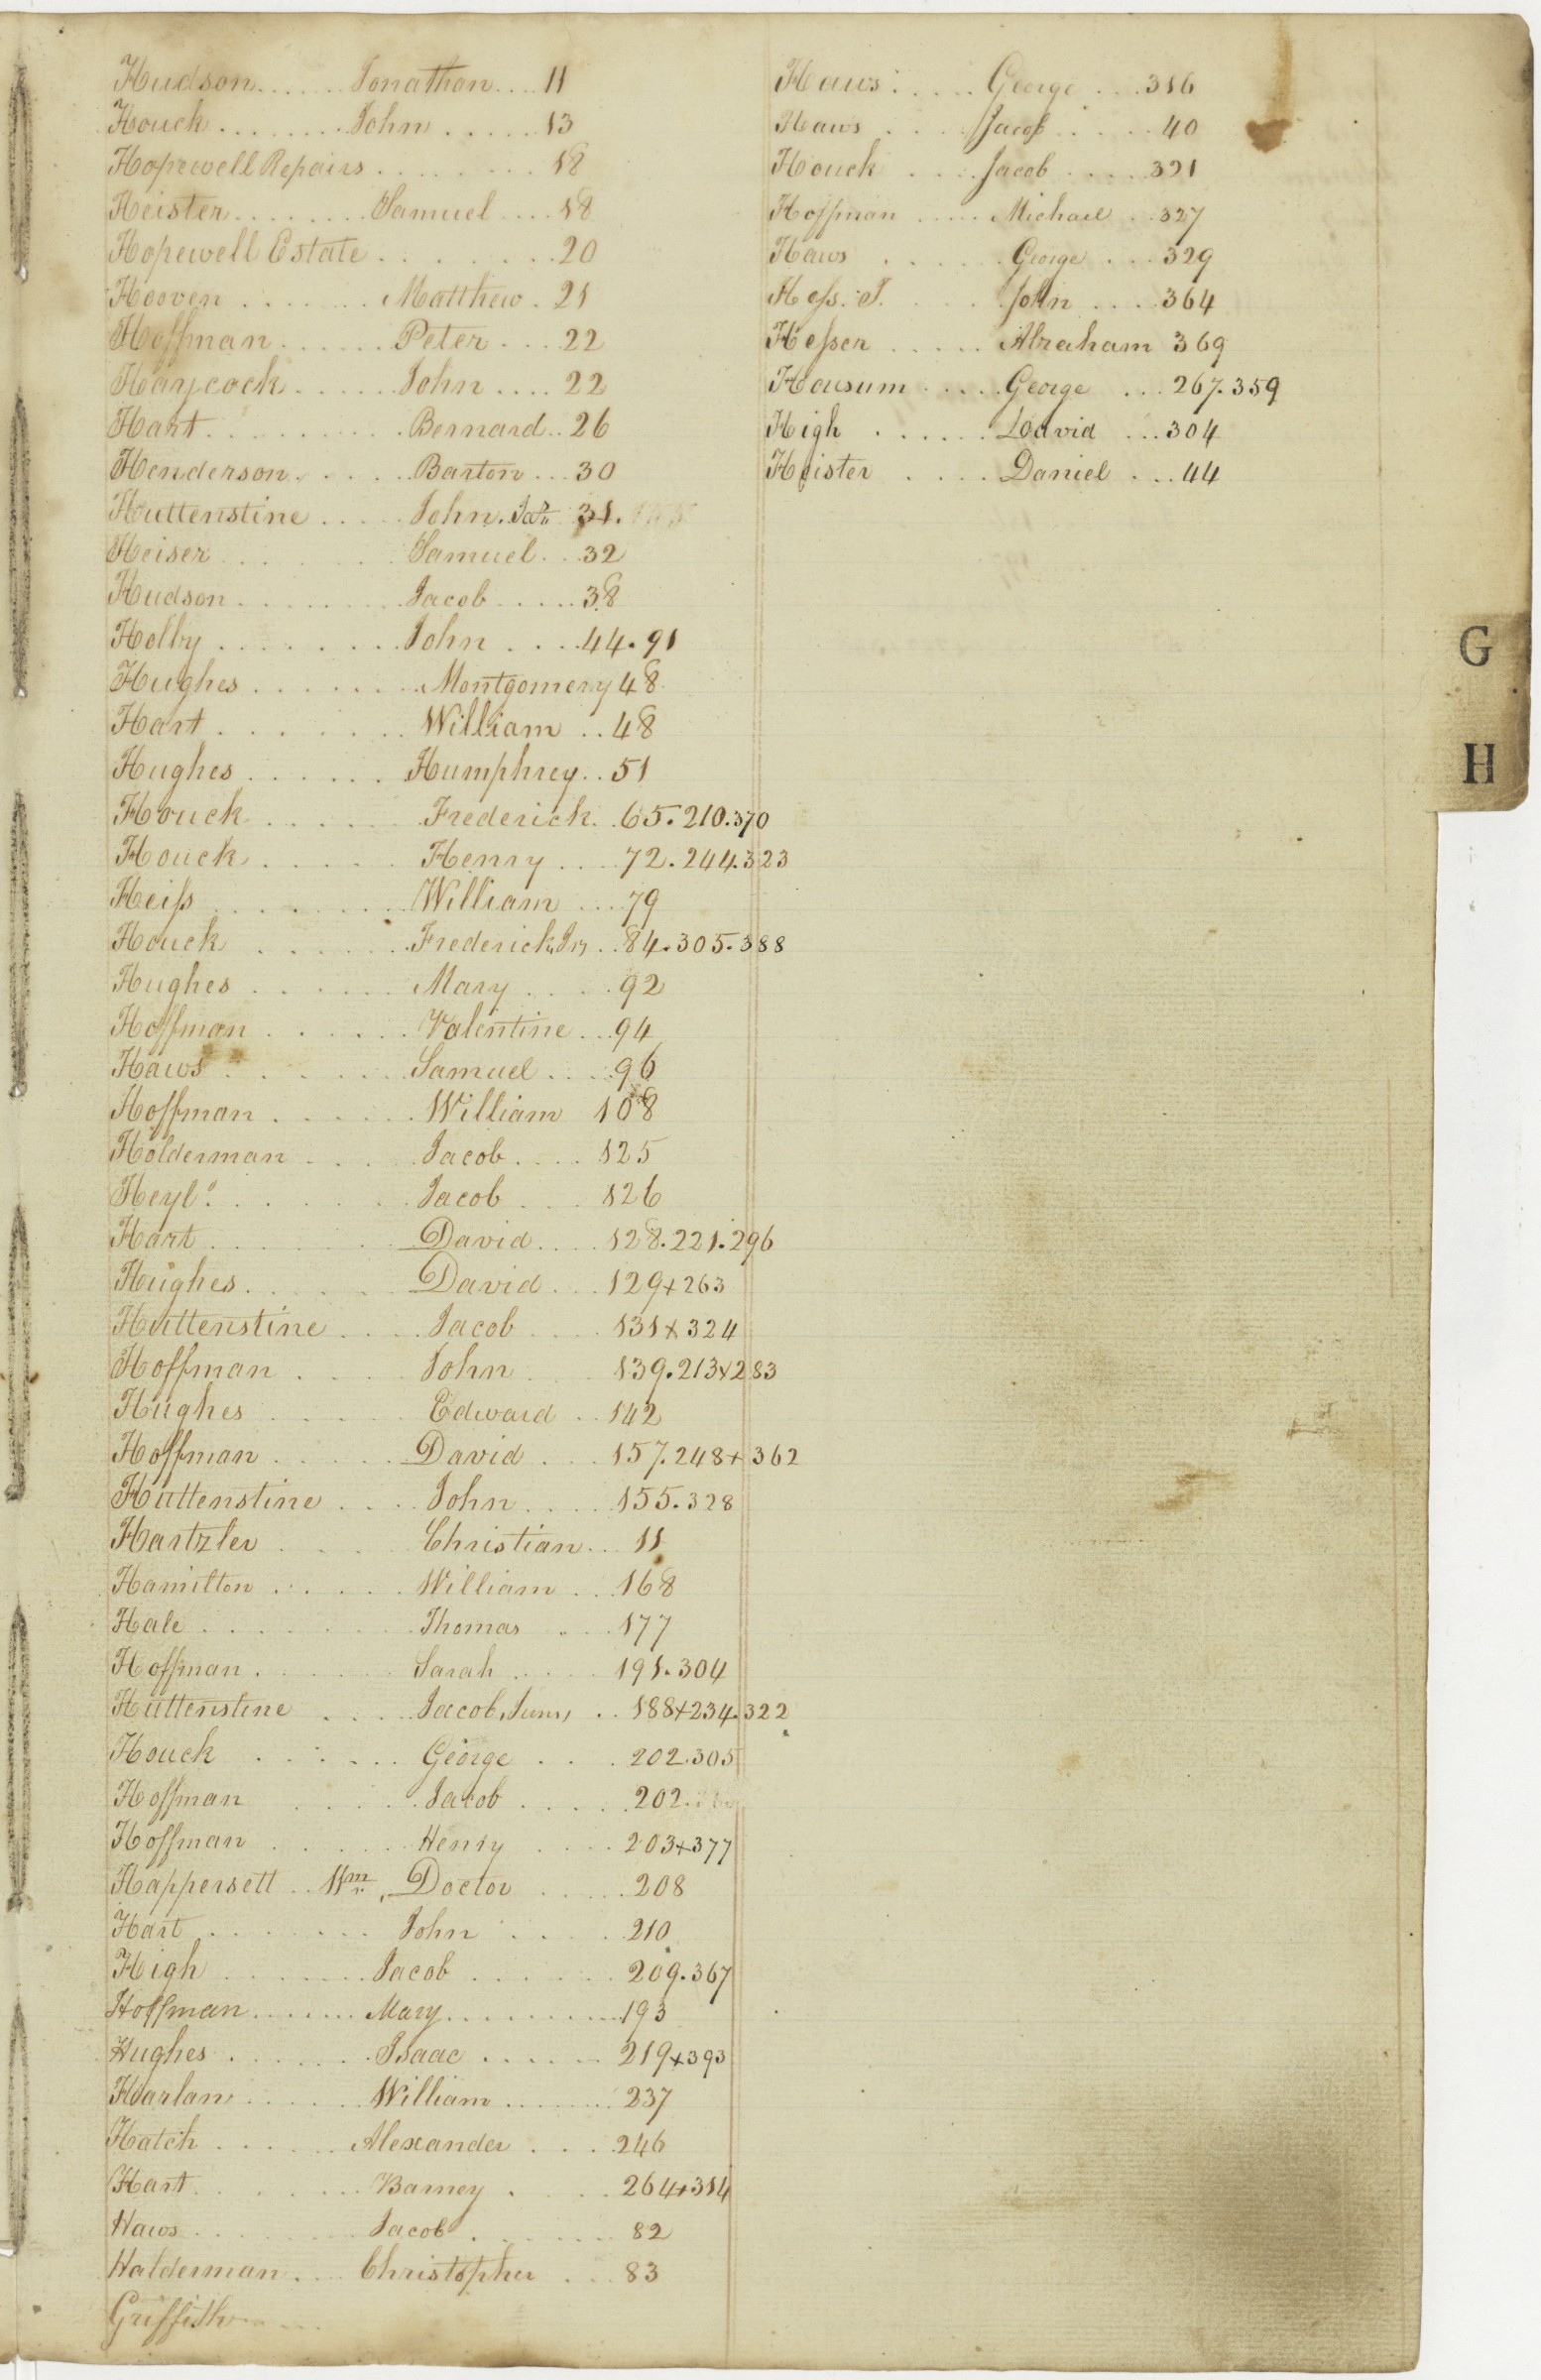 Hudson....... Jonathan.... 11
Houck........ John..... 13
Hopewell Repairs......... 18
Heister........ Samuel.... 18
Hopewell Estate........ 20
Hooven....... Matthew. 21
Hoffman..... Peter... 22
Haycock...... John.... 22
Hart......... Bernard.. 26
Henderson..... Barton... 30
Huttenstine..... John. Jar 31.
Heiser...... Samuel... 32
Hudson........ Jacob..... 38
Holby......... John.... 44.91
Hughes....... Montgomery 48
Hart....... William.. 48
Hughes...... Humphrey.. 51
Houck..... Frederick.. 65.210.370
Houck..... Henry.... 72.244.323
Heiſs....... William.... 79
Houck...... Frederick, Jr, .. 84.305.388
Hughes...... Mary.... 92
Hoffman...... Valentine... 94
Haws...... Samuel.... 96
Hoffman..... William 108
Holderman.... Jacob.... 125
Heyl....... Jacob.... 126
Hart...... David.... 128.221.296
Hughes...... David... 129+263
Huttenstine.... Jacob.... 131+324
Hoffman.... John.... 139.213+283
Hughes.... Edward.. 142
Hoffman...... David... 157.248+362
Huttenstine.... John.... 155.328
Hartzler.... Christian... 11
Hamilton..... William... 168
Hale....... Thomas.... 177
Hoffman...... Sarah..... 191.304
Huttenstine.... Jacob, Junr, .. 188+234.322
Houck...... George.... 202.305
Hoffman..... Jacob..... 202.
Hoffman..... Henry.... 203+377
Happersett.. Wm, Doctor..... 208
Hart....... John..... 210
High....... Jacob...... 209.367
Hoffman....... Mary.......... 193
Hughes....... Isaac...... 219+393
Harlan...... William....... 237
Hatch...... Alexander.... 246
Hart....... Barney..... 264+314
Haws....... Jacob...... 82
Halderman... Christopher... 83
Griffith....
Haws...... George... 316
Haws.... Jacob..... 40
Houck.... Jacob..... 321
Hoffman..... Michael.. 327
Haws...... George... 329
Heſs. J. .... John.... 364
Heſser..... Abraham 369
Housum..... George... 267.359
High...... David... 304
Heister..... Daniel... 44
G
H